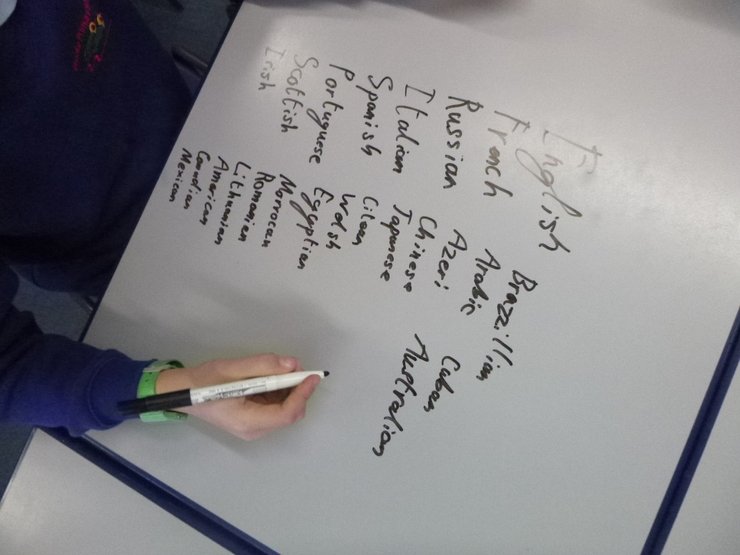 English
French
Russian
Italian
Spanish
Portuguese
Scottish
Irish
Brazillian
Arabic
Azeri
Chinese
Japanese
Cilean
Welsh
Egyptian
Morrocan
Romanian
Lithuanian
American
Canadian
Mexican
Cuban
Australian